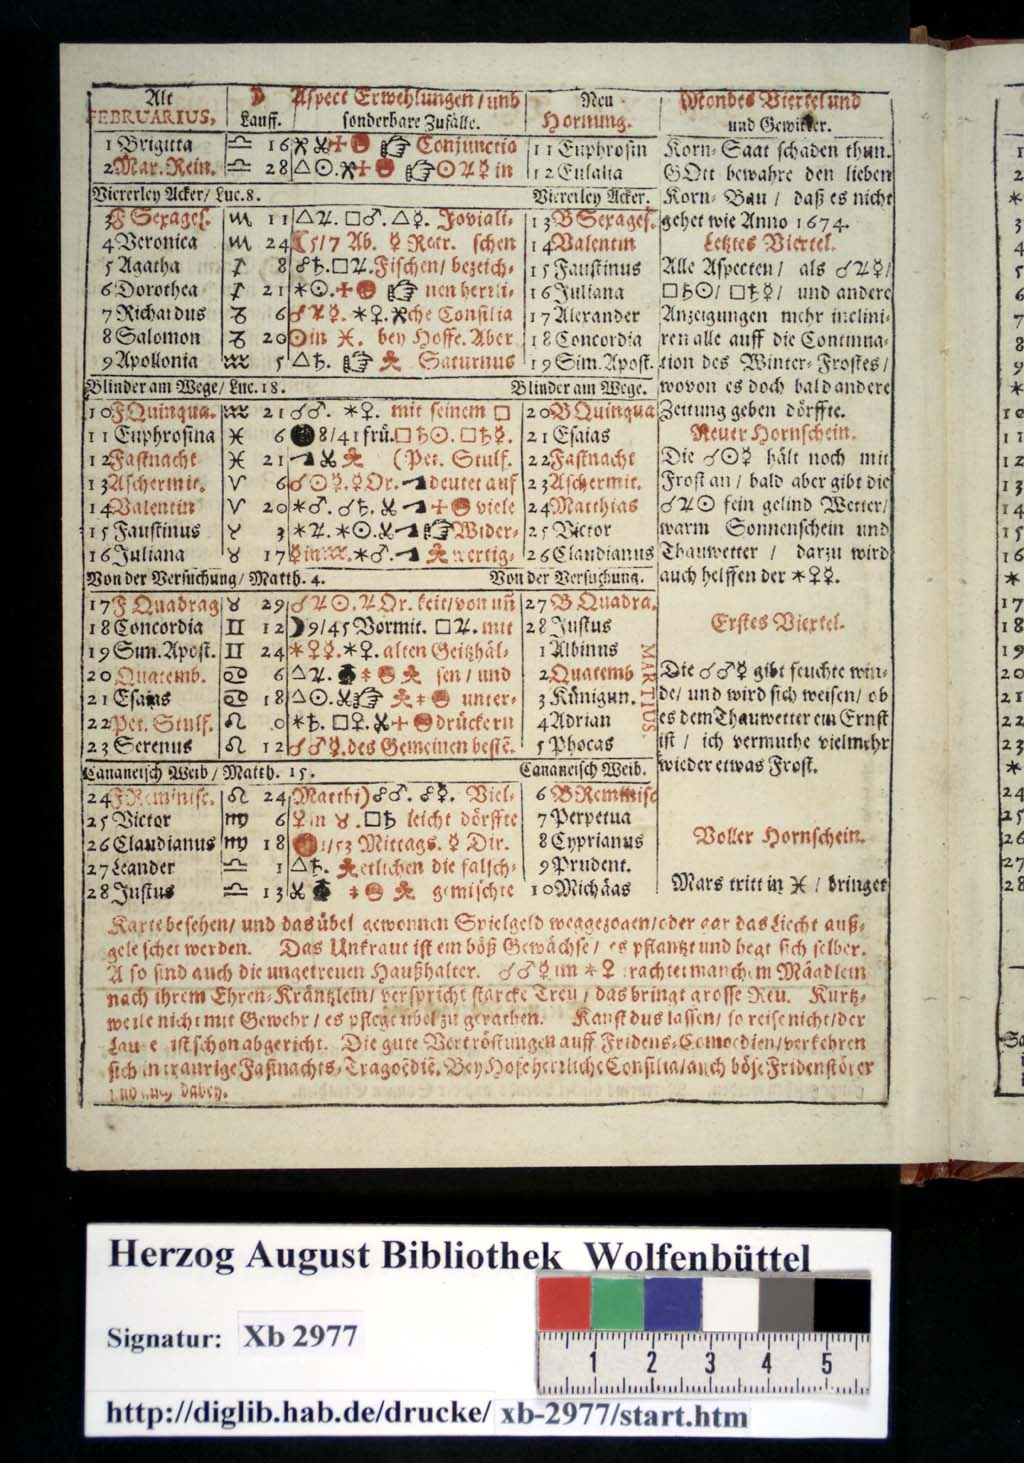 Alt ☽ Aspect Erwehlungen / und Neu Mondes Viertel und
FEBRUARIUS, Lauff. sonderbare Zufälle. Hornung. und Gewitter.
1 Brigitta ♎ 16 Conjunctio 11 Euphrosin Korn-Saat schaden thun.
2 Mar. Rein. ♎ 28 △☉. ☉♃☿ in 12 Eulalia GOtt bewahre den lieben
Viererley Acker / Luc. 8. Viererley Acker. Korn-Bau / daß es nicht
3 F Sexages. ♏ 11 △♃. □♂. △☿. Joviali- 13 B Sexages. gehet wie Anno 1674.
4 Veronica ♏ 24 ☾ 5/7 Ab. ☿ Retr. schen 14 Valentin Letztes Viertel.
5 Agatha ♐ 8 ☍♄. □♃. Fischen / bezeich- 15 Faustinus Alle Aspecten / als ☌♃☿ /
6 Dorothea ♐ 21 ✶☉. nen herrli- 16 Juliana □♄☉ / □♄☿ / und andere
7 Richardus ♑ 6 ☌♃☿. ✶♀. che Consilia 17 Alexander Anzeigungen mehr inclini-
8 Salomon ♑ 20 ☉ in ♓. bey Hoffe. Aber 18 Concordia ren alle auff die Continua-
9 Apollonia ♒ 5 △♄. Saturnus 19 Sim. Apost. tion des Winter-Frostes /
Blinder am Wege / Luc. 18. Blinder am Wege. wovon es doch bald andere
10 F Quinqua. ♒ 21 ☌♂. ✶♀. mit seinem □ 20 B Quinqua Zeitung geben dörffte.
11 Euphrosina ♓ 6 8/41 frü. □♄☉. □♄☿. 21 Esaias Neuer Hornschein.
12 Fastnacht ♓ 21 (Pet. Stulf. 22 Fastnacht Die ☌☉☿ hält noch mit
13 Aschermit. ♈ 6 ☌☉☿. ☿ Or. deutet auf 23 Aschermit. Frost an / bald aber gibt die
14 Valentin ♈ 20 ✶♂. ☌♄. viele 24 Matthias ☌♃☉ fein gelind Wetter /
15 Faustinus ♉ 3 ✶♃. ✶☉. Wider- 25 Victor warm Sonnenschein und
16 Juliana ♉ 17 ☿ in ♒. ✶♂. wertig- 26 Claudianus Thauwetter / darzu wird
Von der Versuchung / Matth. 4. Von der Versuchung. auch helffen der ✶♀☿.
17 F Quadrag ♉ 29 ☌♃☉. ♃ Or. keit / von uñ 27 B Quadra.
18 Concordia ♊ 12 ☽ 9/45 Vormit. □♃. mit 28 Justus Erstes Viertel.
19 Sim. Apost. ♊ 24 ✶♀☿. ✶♀. alten Geitzhäl- 1 Albinus
20 Quatemb. ♋ 6 △♃. sen / und 2 Quatemb Die ☌♂☿ gibt feuchte win-
21 Esaias ♋ 18 △☉. unter- 3 Kůnigun. de / und wird sich weisen / ob
22 Pet. Stulf. ♌ 0 ✶♄. □♀. drückern 4 Adrian es dem Thauwetter ein Ernst
23 Serenus ♌ 12 ☌♂☿. des Gemeinen bestẽ. 5 Phocas ist / ich vermuthe vielmehr
MARTIUS.
Cananeisch Weib / Matth. 15. Cananeisch Weib. wieder etwas Frost.
24 F Reminisc. ♌ 24 Matthi) ☍♂. ☍☿. Viel- 6 B Reminisc
25 Victor ♍ 6 ♀ in ♉. □♄ leicht dörffte 7 Perpetua
26 Claudianus ♍ 18 1/53 Mittags. ☿ Dir. 8 Cyprianus Voller Hornschein.
27 Leander ♎ 1 △♄. etlichen die falsch- 9 Prudent.
28 Justus ♎ 13 gemischte 10 Michäas Mars tritt in ♓ / bringet
Karte besehen / und das übel gewonnen Spielgeld weggezogen / oder gar das Liecht auß-
geleschet werden. Das Unkraut ist ein böß Gewächse / es pflantzt und hegt sich selber.
Also sind auch die ungetreuen Haußhalter. ☌♂☿ im ✶♀ trachtet manchem Mägdlein
nach ihrem Ehren-Kräntzlein / verspricht starcke Treu / das bringt grosse Reu. Kurtz-
weile nicht mit Gewehr / es pflegt übel zu gerathen. Kanst dus lassen / so reise nicht / der
ist schon abgericht. Die gute Vertröstungen auff Fridens-Comoedien / verkehren
sich in traurige Fastnachts-Tragoedië. Bey Hofe herrliche Consilia / auch böse Fridenstörer
dabey.
Herzog August Bibliothek Wolfenbüttel
Signatur: Xb 2977
1 2 3 4 5
http://diglib.hab.de/drucke/ xb-2977/start.htm